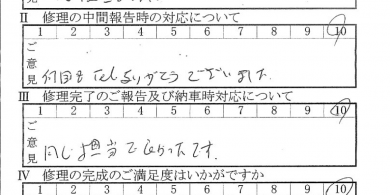 II 修理の中間報告時の対応について
1 2 3 4 5 6 7 8 9 10
ご意見
何回もTelありがとうございました
III 修理完了のご報告及び納車時対応について
1 2 3 4 5 6 7 8 9 10
ご意見
同じ担当で良かったです.
IV 修理の完成のご満足度はいかがですか